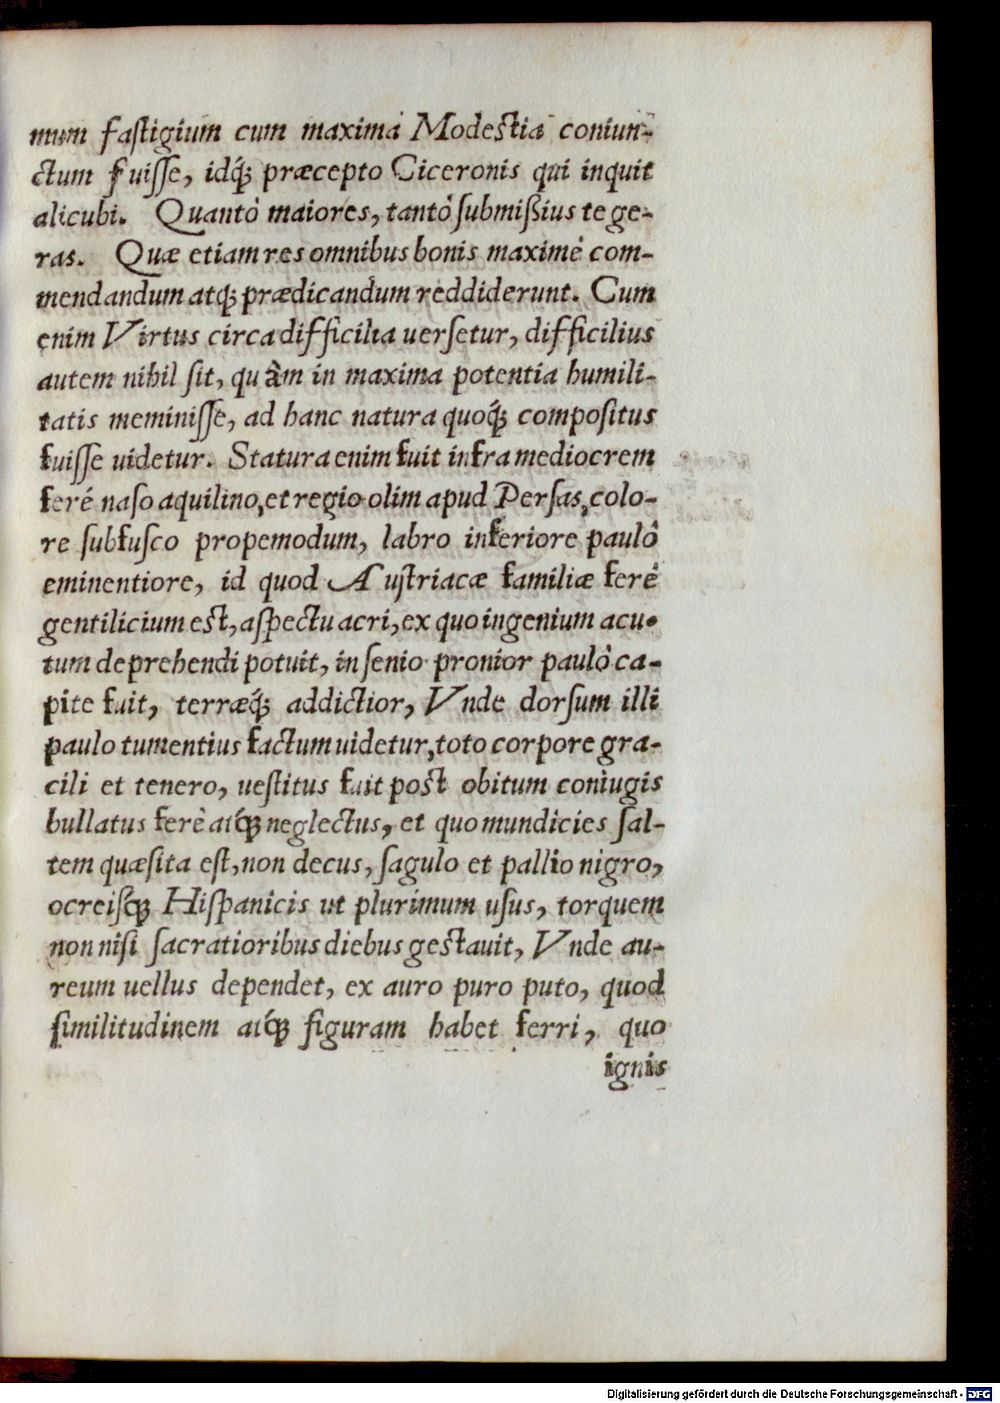 mum faſtigium cum maximá Modeſtia coniun-
ctum fuiſſe, idq́; præcepto Ciceronis qui inquit
alicubi. Quantò maiores, tantò ſubmißius te ge-
ras. Quæ etiam res omnibus bonis maximè com-
mendandum atq; prædicandum reddiderunt. Cum
enim Virtus circa difficilia uerſetur, difficilius
autem nihil ſit, quàm in maxima potentia humili-
tatis meminiſſe, ad hanc natura quoq́; compoſitus
fuiſſe uidetur. Statura enim fuit infra mediocrem
feré naſo aquilino, et regio olim apud Perſas, colo-
re ſubfuſco propemodum, labro inferiore paulò
eminentiore, id quod Auſtriacæ familiæ ferè
gentilicium eſt, aſpectu acri, ex quo ingenium acu-
tum deprehendi potuit, in ſenio pronior paulò ca-
pite fuit, terræq́; addictior, Vnde dorſum illi
paulo tumentius factum uidetur, toto corpore gra-
cili et tenero, ueſtitus fuit poſt obitum coniugis
bullatus ferè atq́; neglectus, et quo mundicies ſal-
tem quæſita eſt, non decus, ſagulo et pallio nigro,
ocreiſq́; Hiſpanicis ut plurimum uſus, torquem
non niſi ſacratioribus diebus geſtauit, Vnde au-
reum uellus dependet, ex auro puro puto, quod
ſimilitudinem atq́; figuram habet ferri, quo
ignis
Digitalisierung gefördert durch die Deutsche Forschungsgemeinschaft - DFG